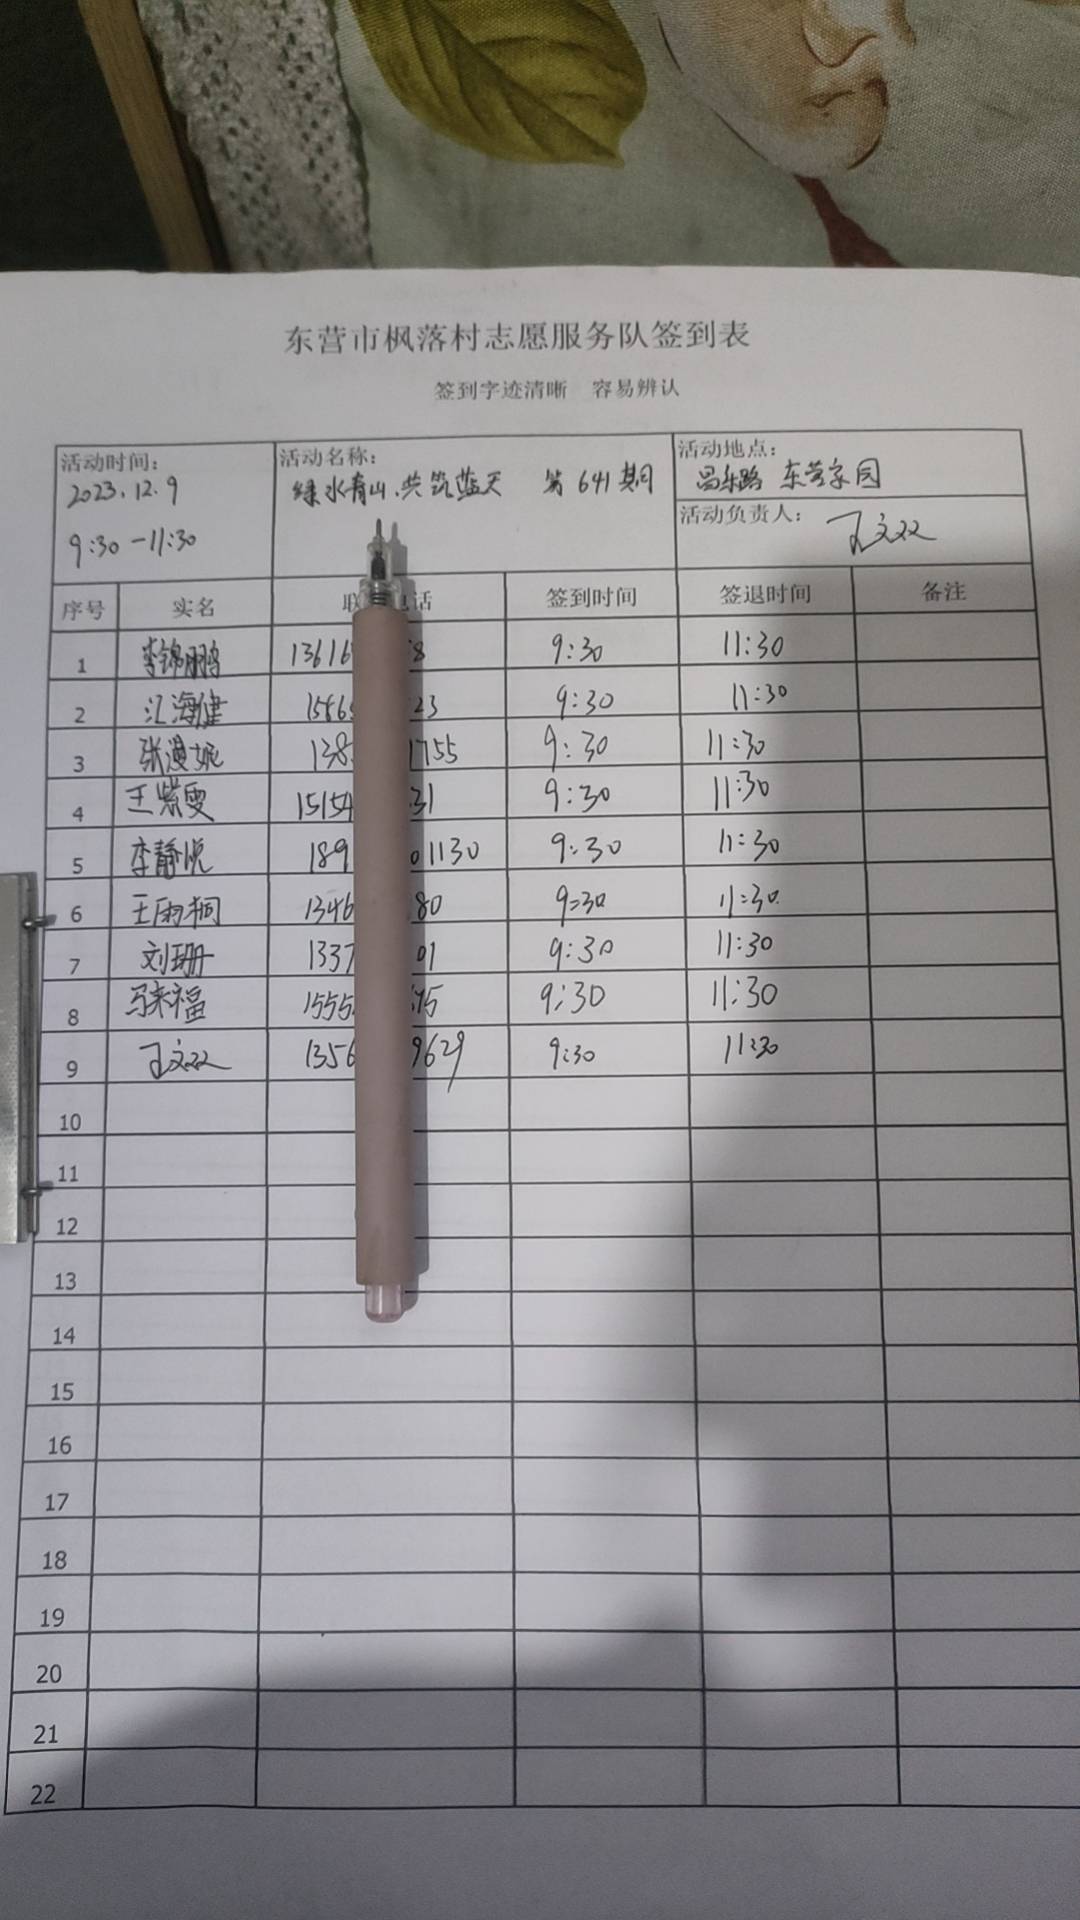 东营市枫落村志愿服务队签到表
签到字迹清晰 容易辨认
活动时间：
2023.12.9
9:30-11:30
活动名称：
绿水青山.共筑蓝天 第641期
活动地点：
昌乐路 东营家园
活动负责人： 王文双
序号 实名 联 电话 签到时间 签退时间 备注
1 李锦鹏 13616 8 9:30 11:30
2 江海健 1586 23 9:30 11:30
3 张漫妮 138 1755 9:30 11:30
4 王紫雯 15154 31 9:30 11:30
5 李静悦 189 01130 9:30 11:30
6 王雨桐 1346 80 9:30 11:30
7 刘珊 1337 01 9:30 11:30
8 马来福 1555 75 9:30 11:30
9 王文双 1356 9629 9:30 11:30
10
11
12
13
14
15
16
17
18
19
20
21
22